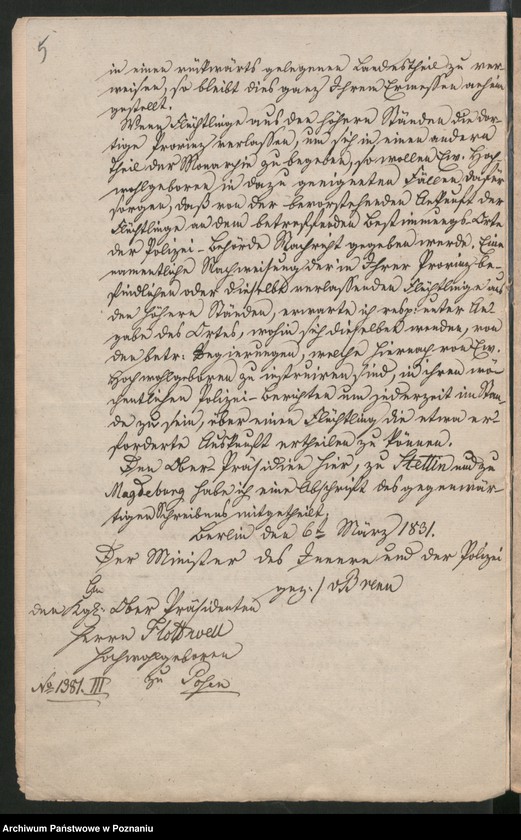 5
in einen rückwärts gelegenen Landestheil zu ver-
weisen, so bleibt dies ganz Ihrem Ermessen anheim
gestellt.
Wenn Flüchtlinge aus den höhern Ständen die dor-
tige Provinz verlassen, um sich in einen andern
Theil der Monarchie zu begeben, so wollen Ew. Hoch-
wohlgeboren in dazu geeigneten Fällen, dafür
sorgen, daß von der bevorstehenden Ankunft der
Flüchtlinge an dem betreffenden Bestimmungs-Orte
der Polizei-Behörde Nachricht gegeben werde. Eine
namentliche Nachweisung der in Ihrer Provinz be-
findlichen oder dieselbe verlassenden Flüchtlinge aus
den höhern Ständen, erwarte ich resp: unter An-
gabe des Ortes, wohin sich dieselben wenden, von
den betr: Regierungen, welche hiernach von Ew.
Hochwohlgeboren zu instruiren sind, in ihren wö-
chentlichen Polizei-Berichten um jederzeit im Stan-
de zu sein, über einen Flüchtling die etwa er-
forderte Auskunft ertheilen zu können.
Den Ober Präsidien hier, zu Stettin und zu
Magdeburg habe ich eine Abschrift des gegenwär-
tigen Schreibens mitgetheilt.
Berlin den 6t März 1831.
Der Minister des Innern und der Polizei
gez: / vBrenn
An
den Kgl: Ober Präsidenten
Herrn Flottwell
Hochwohlgeboren
zu Posen
No 1381. III
Archiwum Państwowe w Poznaniu